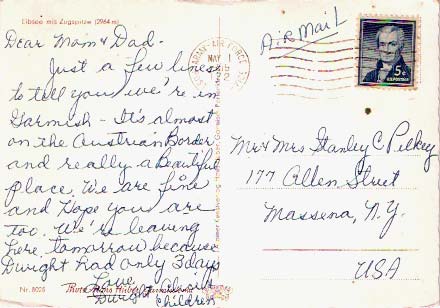 Eibsee mit Zugspitze (2964 m)
Dear Mom & Dad -
Just a few lines
to tell you we're in
Garmish - It's almost
on the Austrian Border
and really a Beautiful
place. We are fine
and Hope you are
too. We're leaving
here tomorrow because
Dwight had only 3 days
Love
Dwight
Children
Nr. 8025
AIR FORCE
MAY 1
Air Mail
5¢
U.S. POSTAGE
Mr & Mrs Stanley C Pelkey
177 Allen Street
Massena, N.Y.
USA